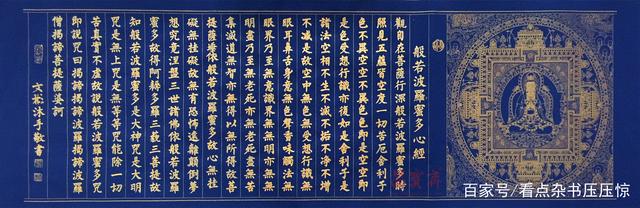 般若波羅蜜多心經
觀自在菩薩行深般若波羅蜜多時
照見五蘊皆空度一切苦厄舍利子
色不異空空不異色色即是空空即
是色受想行識亦復如是舍利子是
諸法空相不生不滅不垢不淨不增
不減是故空中無色無受想行識無
眼耳鼻舌身意無色聲香味觸法無
眼界乃至無意識界無無明亦無無
明盡乃至無老死亦無老死盡無苦
集滅道無智亦無得以無所得故菩
提薩埵依般若波羅蜜多故心無罣
礙無罣礙故無有恐怖遠離顛倒夢
想究竟涅盤三世諸佛依般若波羅
蜜多故得阿耨多羅三藐三菩提故
知般若波羅蜜多是大神咒是大明
咒是無上咒是無等等咒能除一切
苦真實不虛故說般若波羅蜜多咒
即說咒曰揭諦揭諦波羅揭諦波羅
僧揭諦菩提薩婆訶
沐手敬書
百家号/看点杂书压压惊